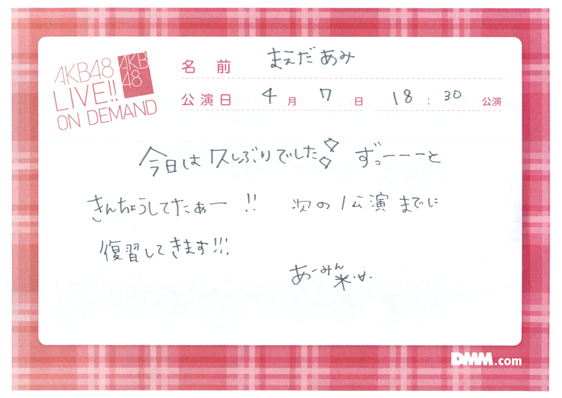 AKB48
LIVE!!
ON DEMAND
AKB
48
名前 まえだあみ
公演日 4月7日 18:30公演
今日は久しぶりでした! ずっーーーと
きんちょうしてたぁー!! 次の公演までに
復習してきます!!!
あーみん
DMM.com